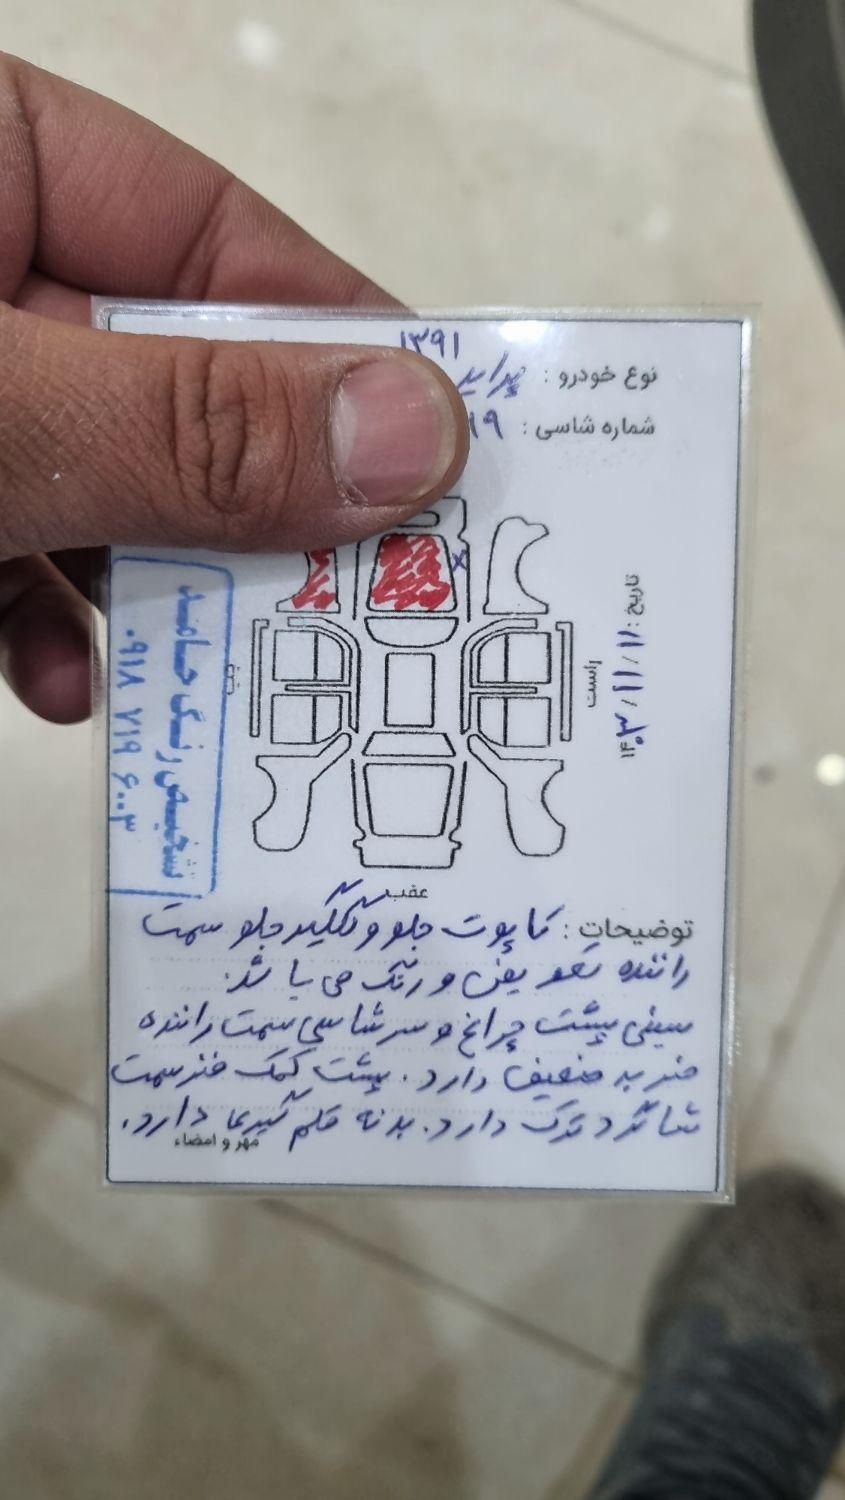 ۱۳۹۱
نوع خودرو : پراید
شماره شاسی : ۱۹
تاریخ : ۱۱ / ۱۱ / ۱۴۰۳
راست
چپ
عقب
تشخیص رنگ حامد
۰۹۱۸ ۷۱۹ ۶۰۰۳
توضیحات : کاپوت جلو و گلگیر جلو سمت
راننده تعویض و رنگ می باشد.
سینی پشت چراغ و سر شاسی سمت راننده
ضربه ضعیف دارد. پشت کمک فنر سمت
شاگرد ترک دارد. بدنه قلم گیری دارد.
مهر و امضاء